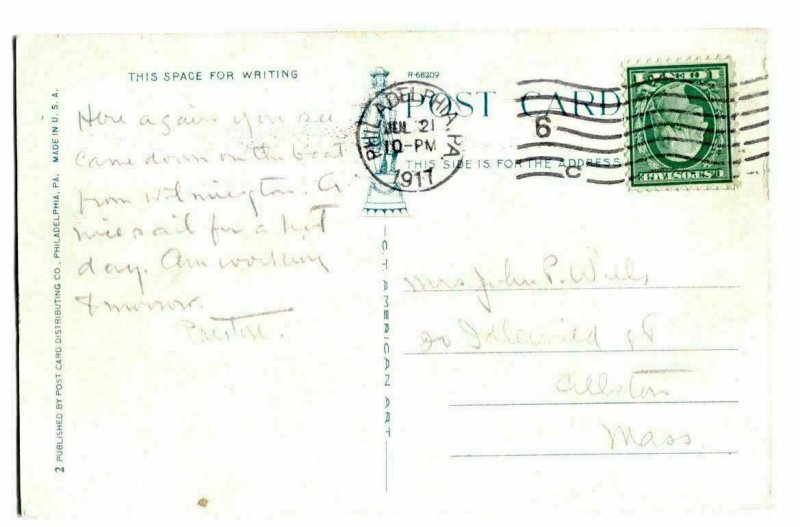 THIS SPACE FOR WRITING
Here again you see
came down on the boat
from Wilmington. A
nice sail for a hot
day. Am working
tomorrow.
Preston.
R-68209
POST CARD
THIS SIDE IS FOR THE ADDRESS
PHILADELPHIA, PA.
JUL 21
10-PM
1917
6
C
1 CENT 1
U.S. POSTAGE
Mrs John P. Wills
20 Idlewild St
Allston
Mass.
C. T. AMERICAN ART
2 PUBLISHED BY POST CARD DISTRIBUTING CO., PHILADELPHIA, PA. MADE IN U. S. A.